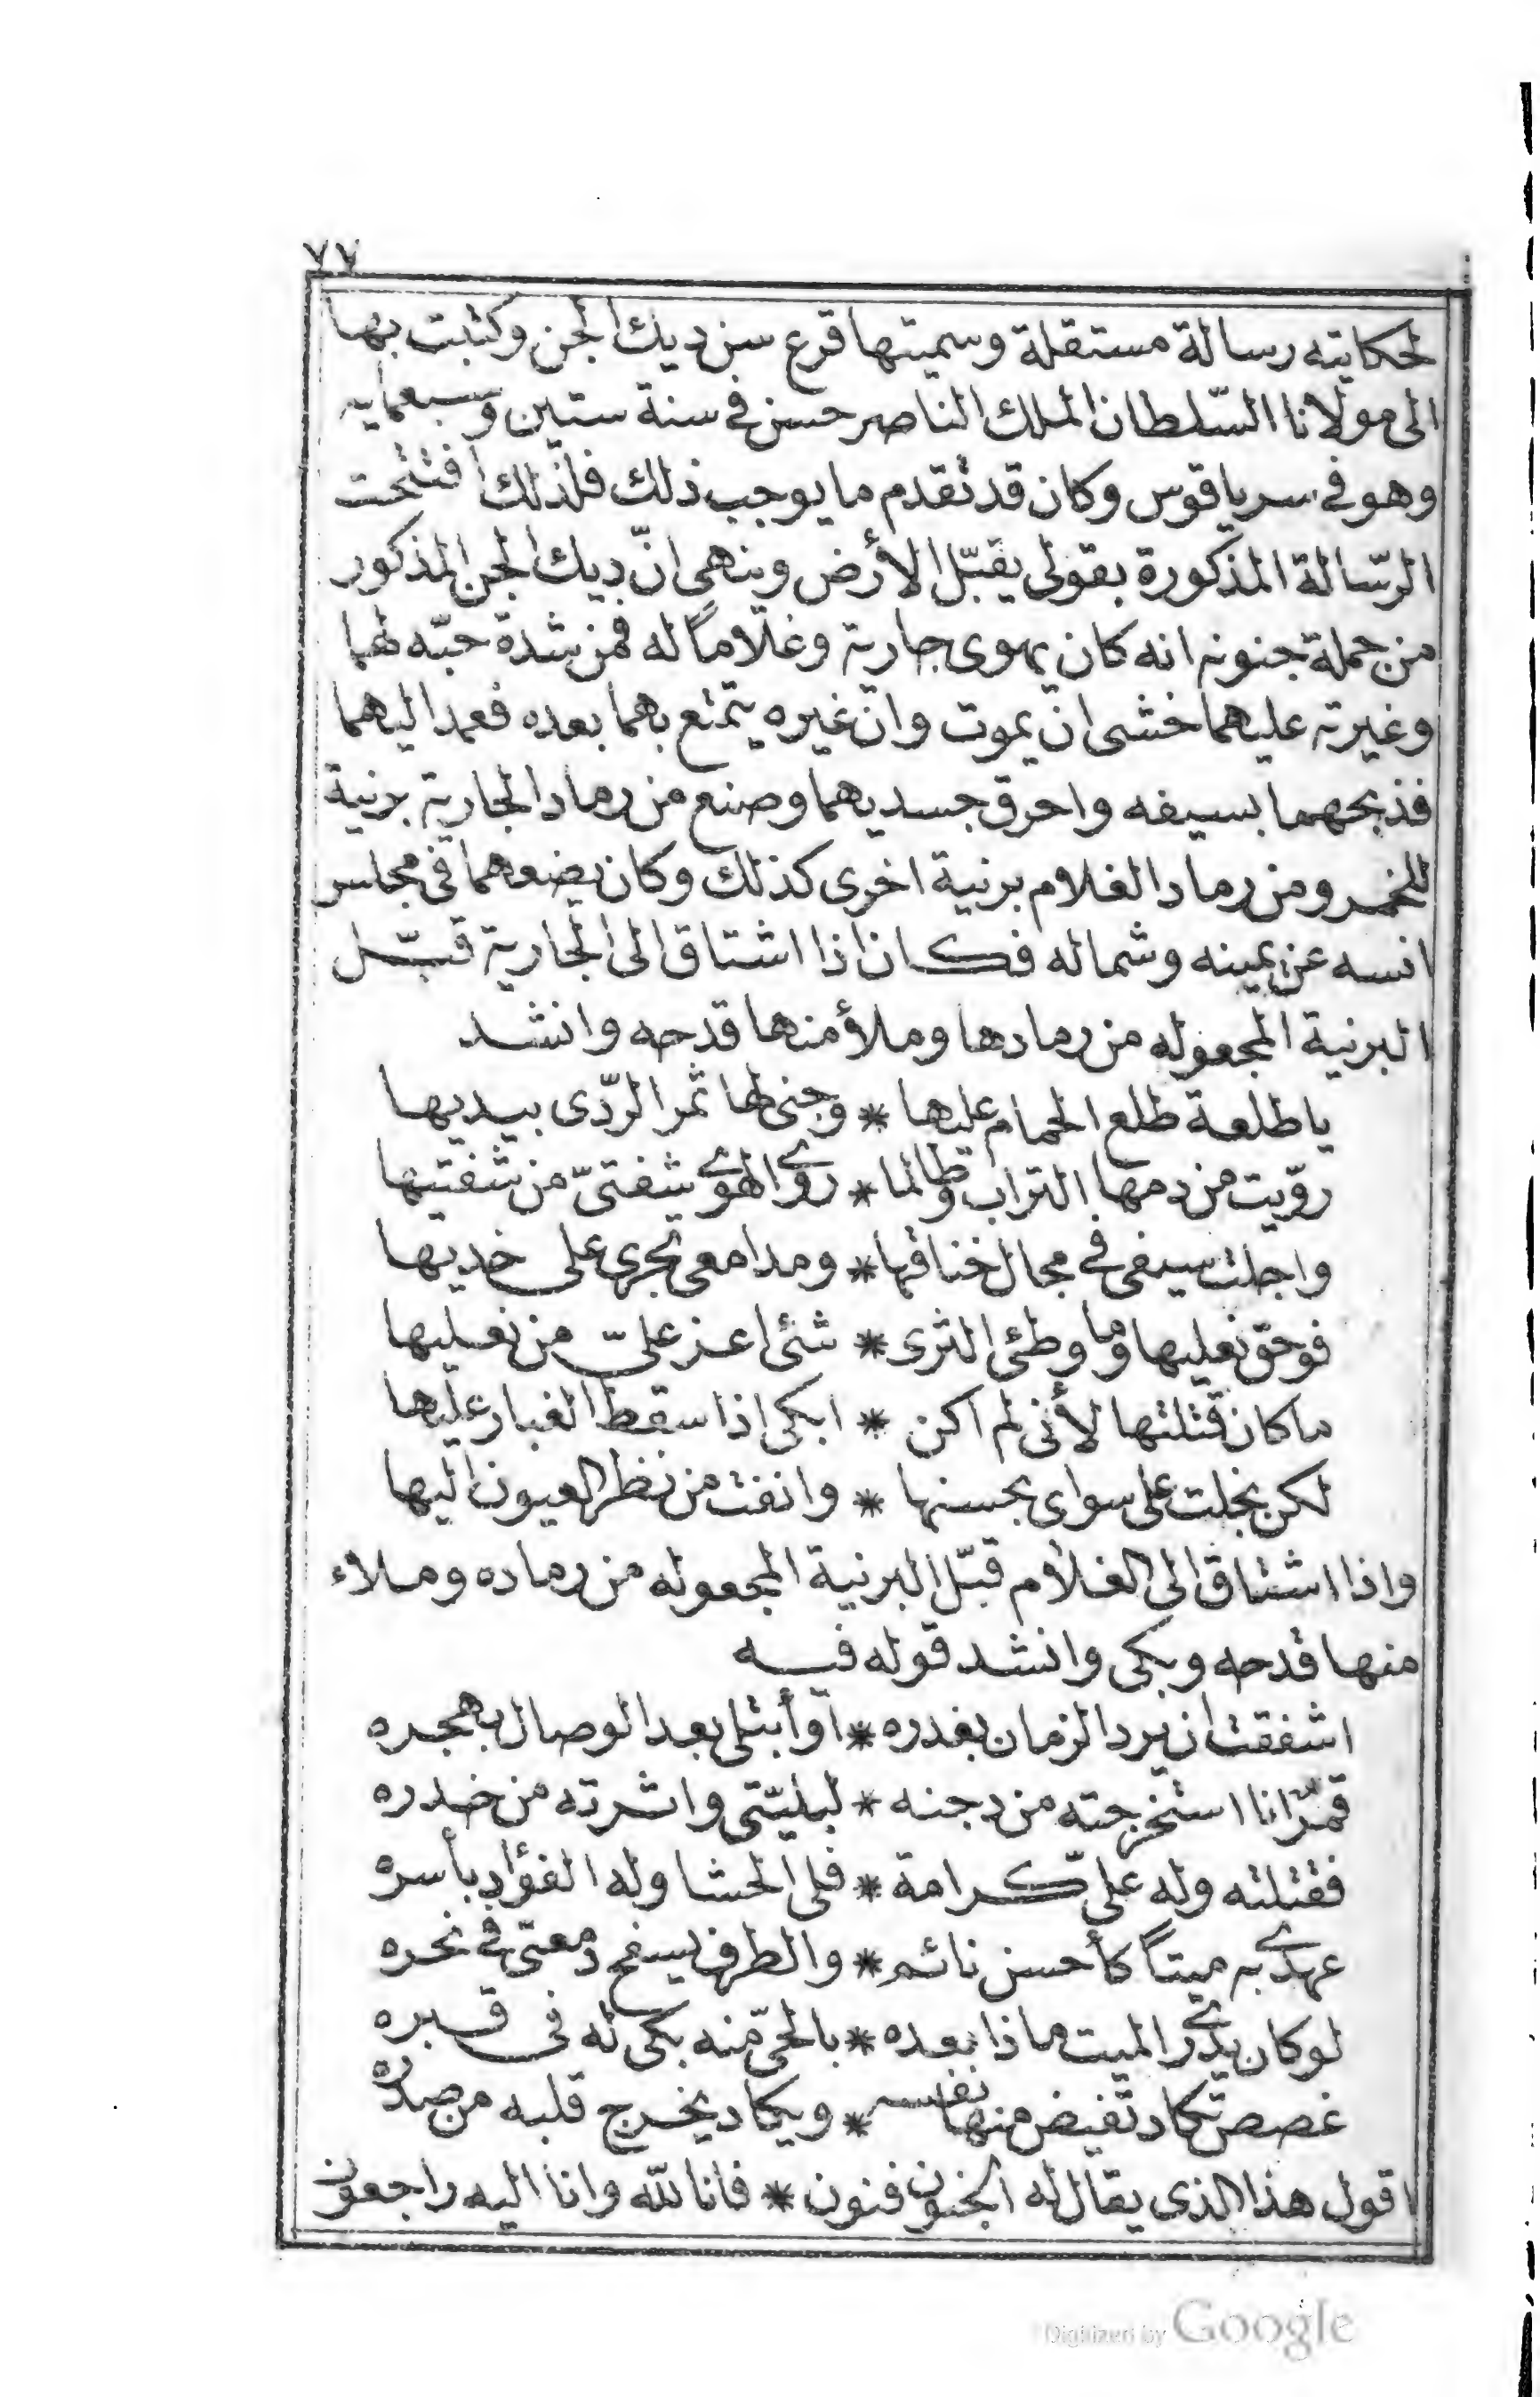 ٧٧
لحكايته رسالة مستقلة وسميتها قرع سن ديك الجن وكتبت بها
الى مولانا السّلطان الملك الناصر حسن في سنة ستين وسبعمايه
وهو في سرياقوس وكان قد تقدم ما يوجب ذلك فلذلك افتتحت
الرّسالة المذكورة بقولى يقبّل الأرض وينهى انّ ديك الجن المذكور
من جملة جنونه انه كان يهوى جارية وغلاماً له فمن شدة حبّه لهما
وغيرته عليهما خشى ان يموت وان غيره يتمتع بهما بعده فعمد اليهما
فذبحهما بسيفه واحرق جسديهما وصنع من رماد الجارية برنية
للخمر ومن رماد الغلام برنية اخرى كذلك وكان يضعهما فى مجلس
انسه عن يمينه وشماله فكان اذا اشتاق الى الجارية قبّل
البرنية المجعوله من رمادها وملأ منها قدحه وانشد
يا طلعة طلع الحمام عليها * وجنى لها ثمر الرّدى بيديها
روّيت من دمها التراب وطالما * روى الهوى شفتىّ من شفتيها
واجلت سيفى في مجال خناقها * ومدامعى تجرى على خديها
فوحقّ نعليها وما وطئ الثرى * شئ اعز علىّ من نعليها
ما كان قتلتها لأنى لم اكن * ابكى اذا سقط الغبار عليها
لكن بخلت على سواى بحسنها * وانفت من نظر العيون اليها
واذا اشتاق الى الغلام قبّل البرنية المجعوله من رماده وملاء
منها قدحه وبكى وانشد قوله فيه
اشفقت ان يرد الزمان بغدره * او أبتلى بعد الوصال بهجره
قمرٌ انا استخرجته من دجنه * لبليّتى واثرته من خدره
فقتلته وله علىّ كرامة * فلى الحشا وله الفؤاد بأسره
عهدى به ميتاً كأحسن نائم * والطرف يسفح دمعتى في نحره
لو كان يدرى الميت ماذا بعده * بالحىّ منه بكى له فى قبره
غصص تكاد تفيض منها نفسه * ويكاد يخرج قلبه من صدره
اقول هذا الذى يقال له الجنون فنون * فانا للّه وانا اليه راجعون
Digitized by Google